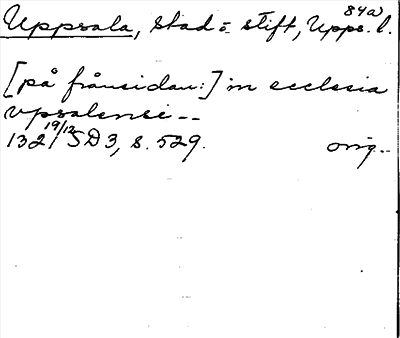 84a
Uppsala, stad o. stift, Upps. l.
[på frånsidan:] in ecclesia
vpsalensi --
19/12
132 SD 3, s. 529. orig.